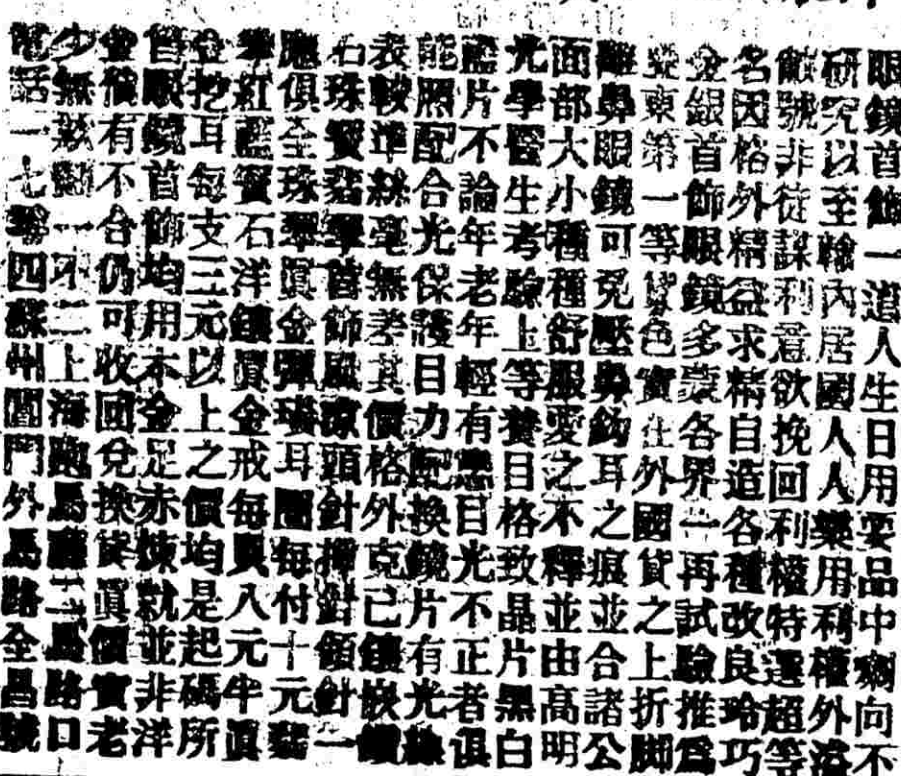 眼鏡首飾一道人生日用要品中劇向不
研究以至輸內居國人人樂用利權外溢
號非徒謀利意欲挽回利權特選超等
名因格外精益求精自造各種改良玲巧
金銀首飾眼鏡多蒙各界一再試驗推爲
東第一等貨色實在外國貨之上折脚
離鼻眼鏡可免壓鼻鈎耳之痕並合諸公
面部大小種種舒服愛之不釋並由高明
光學醫生考驗上等養目格致晶片黑白
藍片不論年老年輕有患目光不正者俱
能照配合光保護目力配換鏡片有光線
表較準絲毫無差其價格外克己鑲嵌鑽
石珠寶翡翠首飾風涼頭針押針領針一
應俱全珠翠眞金彈璜耳圈每付十元翡
翠紅藍寶石洋鑲眞金戒每只八元半眞
金挖耳每支三元以上之價均是起碼所
首飾均用本金足赤煉就並非洋
金價有不合仍可收回兌換貨眞價實老
少無欺劃一不二上海跑馬廳二馬路口
電話一七零四蘇州閶門外馬路全昌號